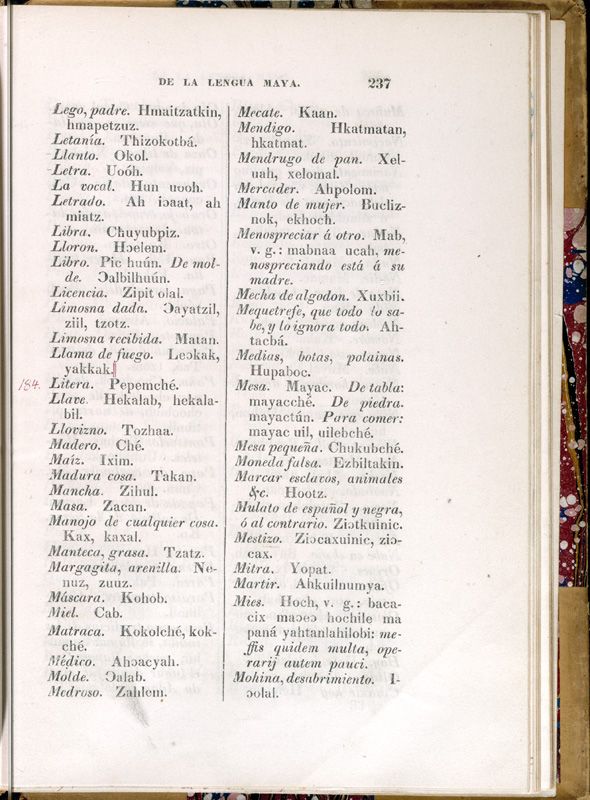 DE LA LENGUA MAYA. 237
Lego, padre. Hmaitzatkin,
hmapetzuz.
Letanía. Thizokotbá.
Llanto. Okol.
Letra. Uoóh.
La vocal. Hun uooh.
Letrado. Ah iɔaat, ah
miatz.
Libra. Chuyubpiz.
Lloron. Hɔelem.
Libro. Pic huún. De mol-
de. Ɔalbilhuún.
Licencia. Zipit olal.
Limosna dada. Ɔayatzil,
ziil, tzotz.
Limosna recibida. Matan.
Llama de fuego. Leɔkak,
yakkak.
184. Litera. Pepemché.
Llave. Hekalab, hekala-
bil.
Llovizno. Tozhaa.
Madero. Ché.
Maíz. Ixim.
Madura cosa. Takan.
Mancha. Zihul.
Masa. Zacan.
Manojo de cualquier cosa.
Kax, kaxal.
Manteca, grasa. Tzatz.
Margagita, arenilla. Ne-
nuz, zuuz.
Máscara. Kohob.
Miel. Cab.
Matraca. Kokolché, kok-
ché.
Médico. Ahɔacyah.
Molde. Ɔalab.
Medroso. Zahlem.
Mecate. Kaan.
Mendigo. Hkatmatan,
hkatmat.
Mendrugo de pan. Xel-
uah, xelomal.
Mercader. Ahpolom.
Manto de mujer. Bucliz-
nok, ekhoch.
Menospreciar á otro. Mab,
v. g.: mabnaa ucah, me-
nospreciando está á su
madre.
Mecha de algodon. Xuxbii.
Mequetrefe, que todo lo sa-
be, y lo ignora todo. Ah-
tacbá.
Medias, botas, polainas.
Hupaboc.
Mesa. Mayac. De tabla:
mayacché. De piedra.
mayactún. Para comer:
mayac uil, uilebché.
Mesa pequeña. Chukubché.
Moneda falsa. Ezbiltakin.
Marcar esclavos, animales
&c. Hootz.
Mulato de español y negra,
ó al contrario. Ziɔtkuinic.
Mestizo. Ziɔcaxuinic, ziɔ-
cax.
Mitra. Yopat.
Martir. Ahkuilnumya.
Mies. Hoch, v. g.: baca-
cix maɔeɔ hochile ma
paná yahtanlahilobi: me-
ffis quidem multa, ope-
rarij autem pauci.
Mohina, desabrimiento. I-
ɔolal.